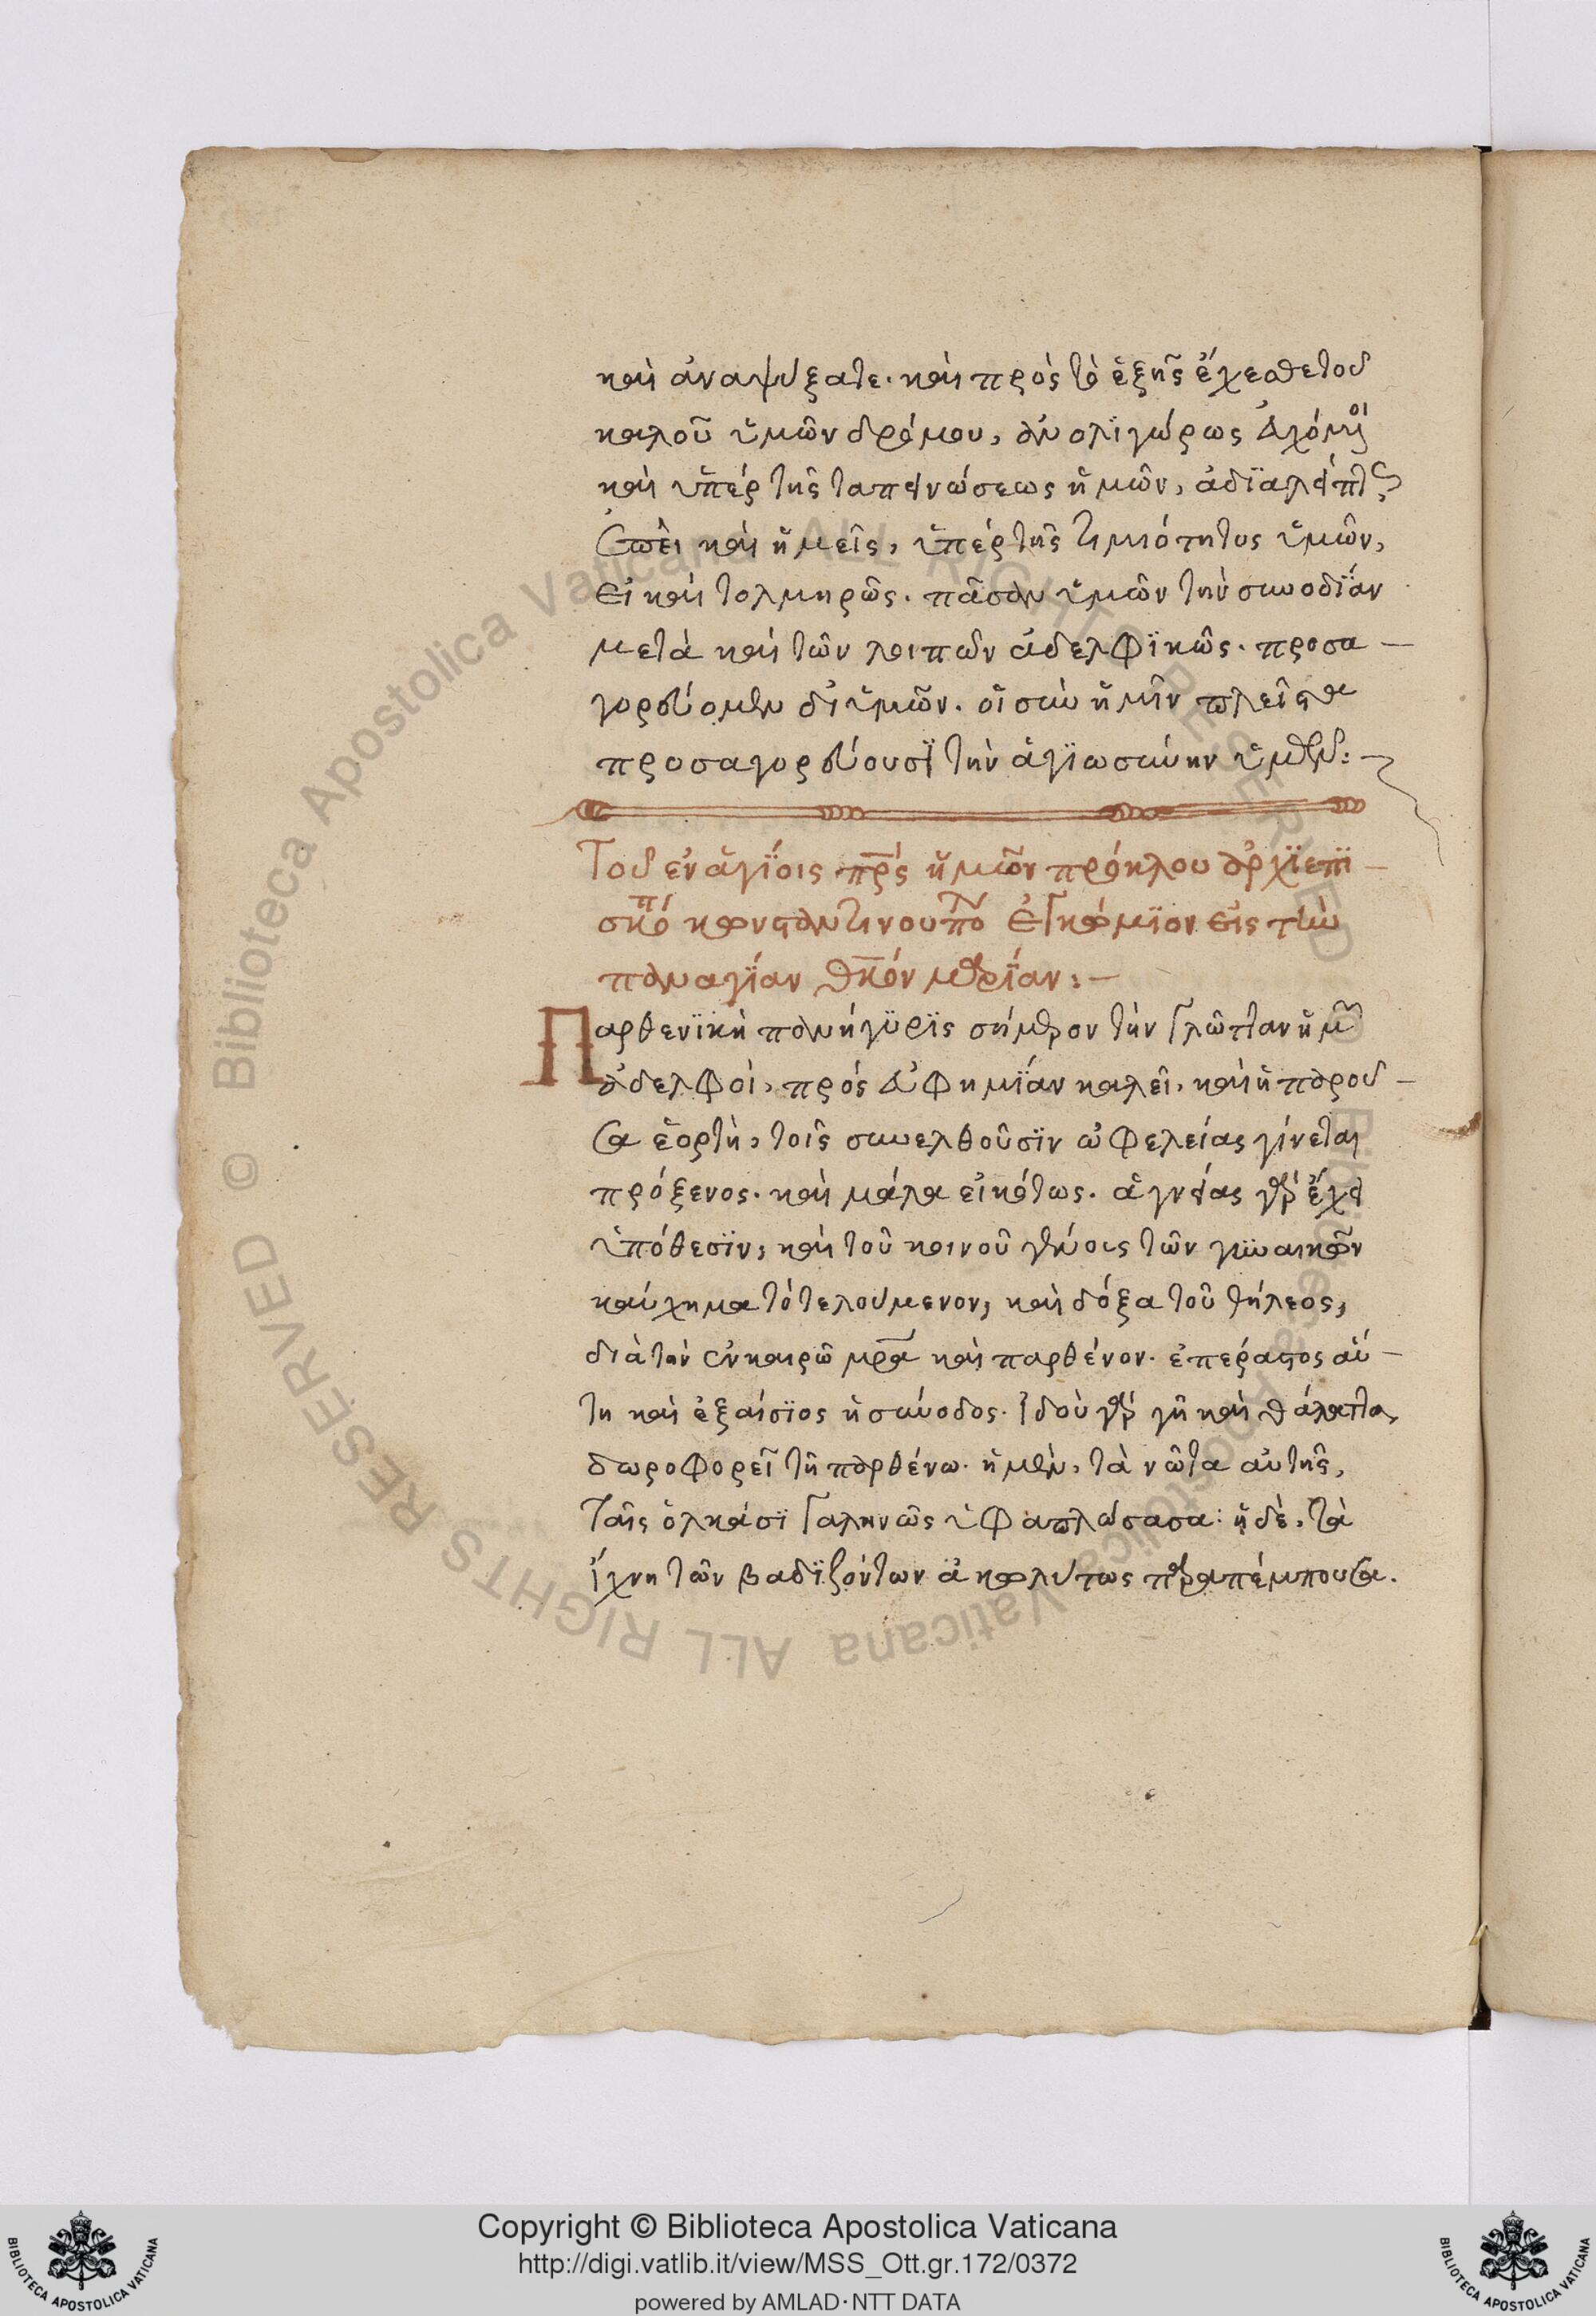 καὶ ἀναψύξατε. καὶ πρὸς τὸ ἑξῆς ἔχεσθε τοῦ
καλοῦ ὑμῶν δρόμου, ἀν ολιγώρως εὐχόμενοι
καὶ ὑπὲρ τῆς ταπεινώσεως ἡμῶν, ἀδϊαλείπτως
καὶ ἡμεῖς, ὑπὲρ τῆς τιμιότητος ὑμῶν,
εἰ καὶ τολμηρῶς. πᾶσαν ὑμῶν τὴν συνοδΐαν
μετὰ καὶ τῶν λοιπῶν ἀδελφϊκῶς. προσα –
γορεύομεν δι ὑμῶν. οἱ σὺν ἡμῖν πλεῖστα
προσαγορεύουσϊ τὴν ἁγϊωσύνην ὑμῶν:–
Τοῦ ἐν ἁγΐοις πρς ἡμῶν πρόκλου ἀρχϊεπϊ –
σκόπ κωνσταντινουπό ἐγκώμϊον εἰς τὴν
παναγΐαν θκόν μαρΐαν:–
Παρθενϊκὴ πανήγϋρϊς σήμερον τὴν γλῶτταν ἡμῶν
ἀδελφοὶ, πρὸς εὐφημΐαν καλεῖ, καὶ ἡ παροῦ –
σα ἑορτὴ, τοῖς συνελθοῦσϊν ὠφελείας γίνεται
πρόξενος. καὶ μάλα εἰκότως. ἁγνείας γὰρ ἔχει
ὑπόθεσϊν, καὶ τοῦ κοινοῦ γένους τῶν γϋναικῶν
καύχημα τὸ τελούμενον, καὶ δόξα τοῦ θήλεος,
διὰ τὴν ἐν καιρῶ μρα καὶ παρθένον. ἐπέραστος αὕ –
τη καὶ ἐξαίσϊος ἡ σύνοδος. ἰδοὺ γὰρ γῆ καὶ θάλαττα,
δωροφορεῖ τῆ παρθένω. ἡ μὲν, τὰ νῶτα αὐτῆς,
ταῖς ὁλκάσϊ γαληνῶς ὑφαπλώσασα: ἡ δὲ, τὰ
ἴχνη τῶν βαδϊζόντων ἀκωλύτως παραπέμπουσα.
Copyright © Biblioteca Apostolica Vaticana
http://digi.vatlib.it/view/MSS_Ott.gr.172/0372
powered by AMLAD·NTT DATA
© Biblioteca Apostolica Vaticana ALL RIGHTS RESERVED
© Biblioteca Apostolica Vaticana ALL RIGHTS RESERVED
BIBLIOTECA APOSTOLICA VATICANA
BIBLIOTECA APOSTOLICA VATICANA